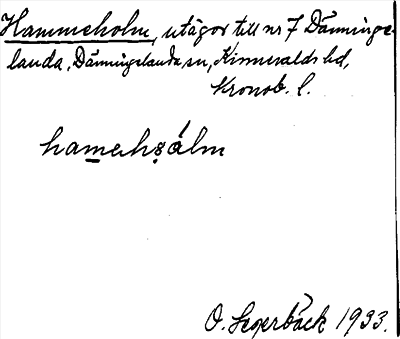 Hammeholm, utägor till nr 7 Dänninge-
landa, Dänningelanda sn, Kinnevalds hd,
Kronob. l.
hamahsålm
O. Segerbäck 1933.